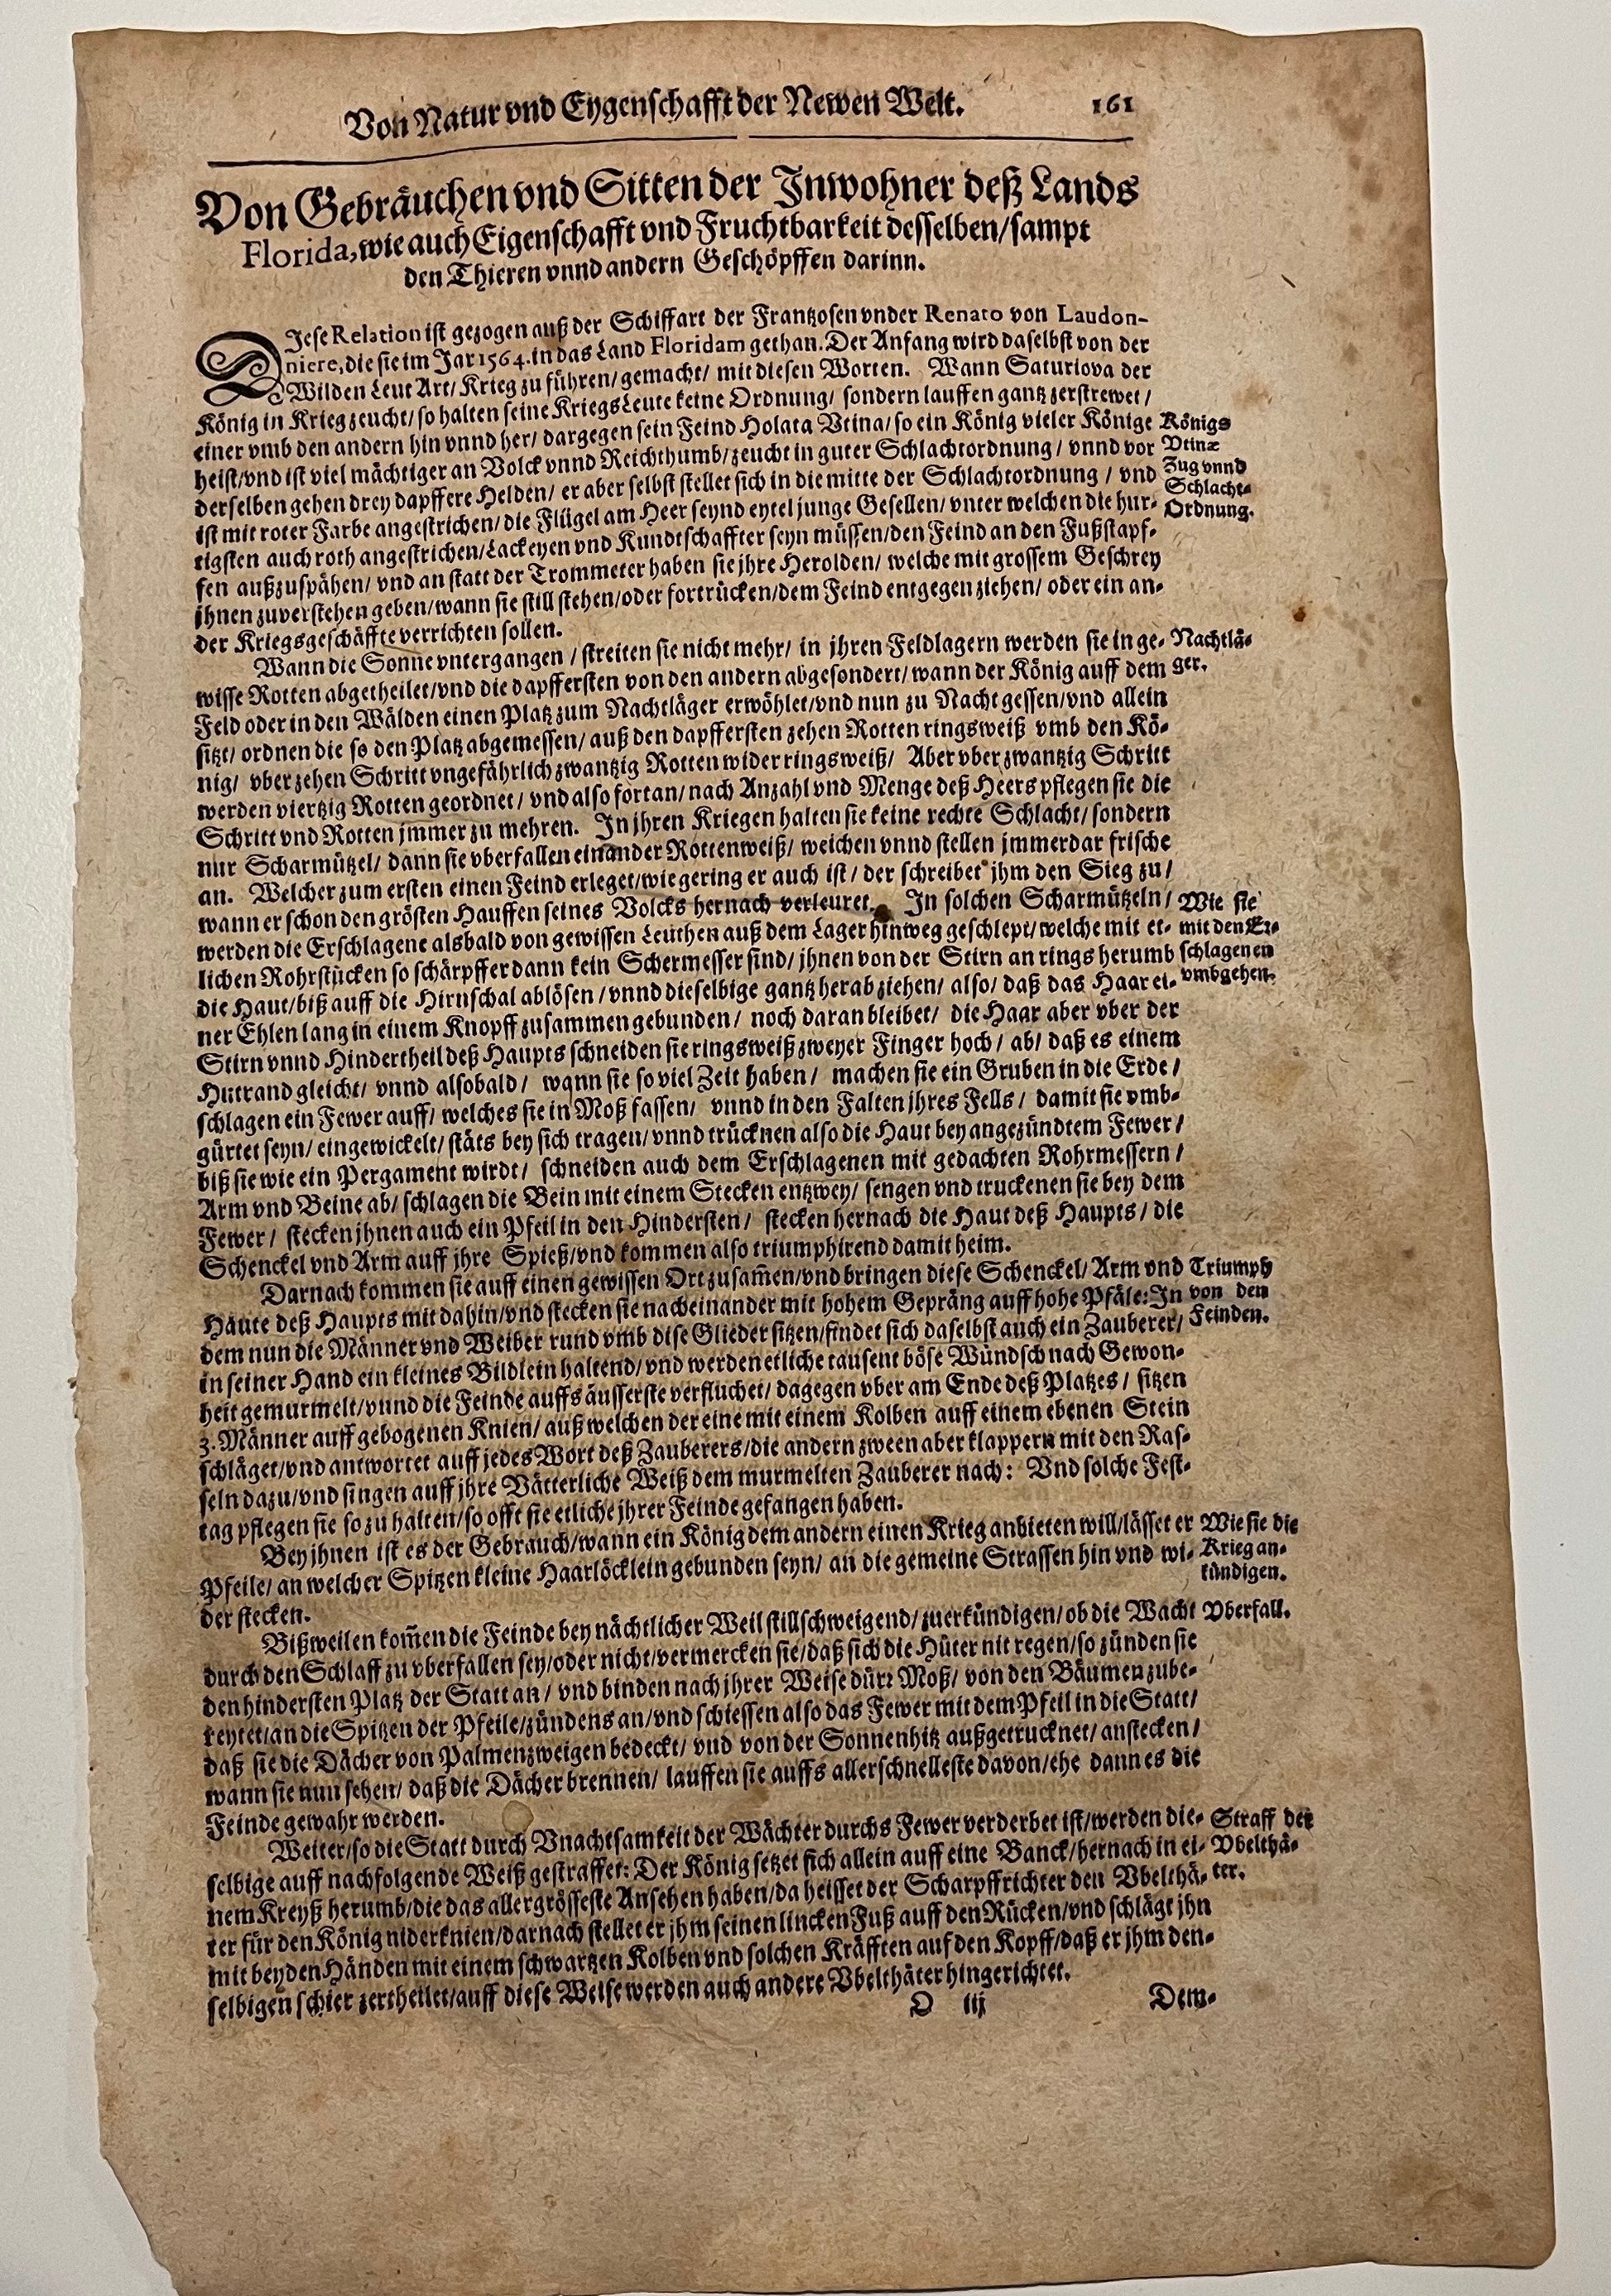 Von Natur vnd Eygenschafft der Newen Welt. 161
Von Gebräuchen vnd Sitten der Inwohner deß Lands
Florida, wie auch Eigenschafft vnd Fruchtbarkeit desselben/sampt
den Thieren vnnd andern Geschöpffen darinn.
DIese Relation ist gezogen auß der Schiffart der Frantzosen vnder Renato von Laudon-
niere, die sie im Jar 1564. in das Land Floridam gethan. Der Anfang wird daselbst von der
Wilden Leut Art/ Krieg zu führen/ gemacht/ mit diesen Worten. Wann Saturiova der
König in Krieg zeucht/ so halten seine KriegsLeute keine Ordnung/ sondern lauffen gantz zerstrewet/
einer vmb den andern hin vnnd her/ dargegen sein Feind Holata Vtina/ so ein König vieler Könige
heist/vnd ist viel mächtiger an Volck vnnd Reichthumb/ zeucht in guter Schlachtordnung/ vnnd vor
derselben gehen drey dapffere Helden/ er aber selbst stellet sich in die mitte der Schlachtordnung/ vnd
ist mit roter Farbe angestrichen/ die Flügel am Heer seynd eytel junge Gesellen/ vnter welchen die hur-
tigsten auch roth angestrichen/ Lackeyen vnd Kundtschaffter seyn müssen/ den Feind an den Fußstapf-
fen außzuspähen/ vnd an statt der Trommeter haben sie jhre Herolden/ welche mit grossem Geschrey
jhnen zuverstehen geben/ wann sie still stehen/ oder fortrücken/ dem Feind entgegen ziehen/ oder ein an-
der Kriegsgeschäffte verrichten sollen.
Königs
Vtinæ
Zug vnnd
Schlacht-
Ordnung.
Wann die Sonne vntergangen/ streiten sie nicht mehr/ in jhren Feldlagern werden sie in ge-
wisse Rotten abgetheilet/vnd die dapffersten von den andern abgesondert/ wann der König auff dem
Feld oder in den Wälden einen Platz zum Nachtläger erwöhlet/vnd nun zu Nacht gessen/vnd allein
sitzt/ ordnen die so den Platz abgemessen/ auß den dapffersten zehen Rotten ringsweiß vmb den Kö-
nig/ vber zehen Schritt vngefährlich zwantzig Rotten wider ringsweiß/ Aber vber zwantzig Schritt
werden viertzig Rotten geordnet/ vnd also fortan/ nach Anzahl vnd Menge deß Heers pflegen sie die
Schritt vnd Rotten jmmer zu mehren. In jhren Kriegen halten sie keine rechte Schlacht/ sondern
nur Scharmützel/ dann sie vberfallen einander Rottenweiß/ weichen vnnd stellen jmmerdar frische
an. Welcher zum ersten einen Feind erleget/ wie gering er auch ist/ der schreibet jhm den Sieg zu/
wann er schon den grösten Hauffen seines Volcks hernach verleuret. In solchen Scharmützeln/
werden die Erschlagene alsbald von gewissen Leuthen auß dem Lager hinweg geschlept/ welche mit et-
lichen Rohrstücken so schärpffer dann kein Schermesser sind/ jhnen von der Stirn an rings herumb
die Haut/ biß auff die Hirnschal ablösen/ vnnd dieselbige gantz herab ziehen/ also/ daß das Haar ei-
ner Ehlen lang in einem Knopff zusammen gebunden/ noch daran bleibet/ die Haar aber vber der
Stirn vnnd Hindertheil deß Haupts schneiden sie ringsweiß zweyer Finger hoch/ ab/ daß es einem
Hutrand gleicht/ vnnd alsobald/ wann sie so viel Zeit haben/ machen sie ein Gruben in die Erde/
schlagen ein Fewer auff/ welches sie in Moß fassen/ vnnd in den Falten jhres Fells/ damit sie vmb-
gürtet seyn/ eingewickelt/ stäts bey sich tragen/ vnnd trücknen also die Haut bey angezündtem Fewer/
biß sie wie ein Pergament wirdt/ schneiden auch dem Erschlagenen mit gedachten Rohrmessern/
Arm vnd Beine ab/ schlagen die Bein mit einem Stecken entzwey/ sengen vnd truckenen sie bey dem
Fewer/ stecken jhnen auch ein Pfeil in den Hindersten/ stecken hernach die Haut deß Haupts/ die
Schenckel vnd Arm auff jhre Spieß/vnd kommen also triumphirend damit heim.
Nachtlä-
ger.
Wie sie
mit den Er-
schlagenen
vmbgehen.
Darnach kommen sie auff einen gewissen Ort zusam̄en/vnd bringen diese Schenckel/ Arm vnd
Häute deß Haupts mit dahin/vnd stecken sie nacheinander mit hohem Gepräng auff hohe Pfäle: In
dem nun die Männer vnd Weiber rund vmb dise Glieder sitzen/findet sich daselbst auch ein Zauberer/
in seiner Hand ein kleines Bildlein haltend/ vnd werden etliche tausent böse Wündsch nach Gewon-
heit gemurmelt/ vnnd die Feinde auffs äusserste verfluchet/ dagegen vber am Ende deß Platzes/ sitzen
3. Männer auff gebogenen Knien/ auß welchen der eine mit einem Kolben auff einem ebenen Stein
schläget/vnd antwortet auff jedes Wort deß Zauberers/die andern zween aber klappern mit den Ras-
seln dazu/vnd singen auff jhre Vätterliche Weiß dem murmelten Zauberer nach: Vnd solche Fest-
tag pflegen sie so zu halten/so offt sie etliche jhrer Feinde gefangen haben.
Triumph
von den
Feinden.
Bey jhnen ist es der Gebrauch/wann ein König dem andern einen Krieg anbieten will/lässet er
Pfeile/ an welcher Spitzen kleine Haarlöcklein gebunden seyn/ an die gemeine Strassen hin vnd wi-
der stecken.
Wie sie die
Krieg an-
kündigen.
Bißweilen kom̄en die Feinde bey nächtlicher Weil stillschweigend/ zuerkündigen/ ob die Wacht
durch den Schlaff zu vberfallen sey/oder nicht/vermercken sie/daß sich die Hüter nit regen/so zünden sie
den hindersten Platz der Statt an/ vnd binden nach jhrer Weise dürr Moß/ von den Bäumen zube-
reytet/an die Spitzen der Pfeile/zündens an/vnd schiessen also das Fewer mit dem Pfeil in die Statt/
daß sie die Dächer von Palmenzweigen bedeckt/ vnd von der Sonnenhitz außgetrucknet/ anstecken/
wann sie nun sehen/ daß die Dächer brennen/ lauffen sie auffs allerschnelleste davon/ehe dann es die
Feinde gewahr werden.
Vberfall.
Weiter/so die Statt durch Vnachtsamkeit der Wächter durchs Fewer verderbet ist/werden die-
selbige auff nachfolgende Weiß gestraffet: Der König setzet sich allein auff eine Banck/hernach in ei-
nem Kreyß herumb/die das allergrösseste Ansehen haben/da heisset der Scharpffrichter den Vbelthä-
ter für den König niderknien/darnach stellet er jhm seinen lincken Fuß auff den Rücken/vnd schlägt jhn
mit beyden Händen mit einem schwartzen Kolben vnd solchen Kräfften auf den Kopff/daß er jhm den-
selbigen schier zertheilet/auff diese Weise werden auch andere Vbelthäter hingerichtet.
Straff der
Vbelthä-
ter.
O iij Dem-